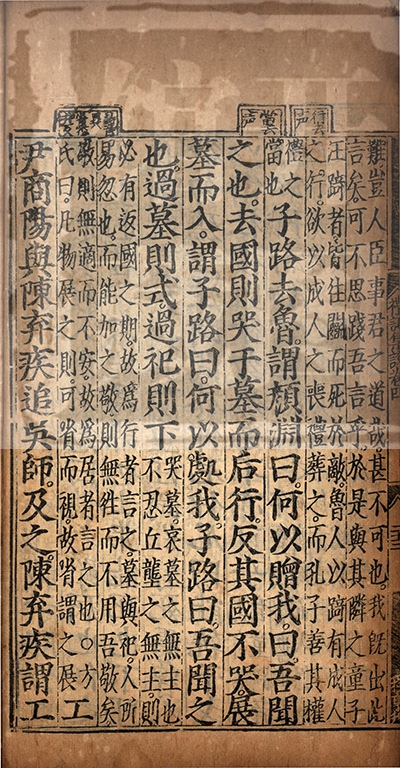 行去声
當去声
難豈人臣事君之道哉甚不可也我既出此
言矣可不思踐吾言乎於是與其隣之童子
汪踦者皆往鬭而死於敵魯人以踦有成人
之行欲以成人之喪禮葬之而孔子善其權
禮之當也子路去魯謂顏淵曰何以贈我曰吾聞
之也去國則哭于墓而后行反其國不哭展
墓而入謂子路曰何以處我子路曰吾聞之
也過墓則式過祀則下哭墓哀墓之無主也不忍丘壟之無主則
必有返國之期故爲行者言之墓與祀人所
易忽也而能加之敬則無往而不用吾敬矣
敬則無適而不安故爲居者言之也○方
氏曰凡物展之則可省而視故省謂之展工
尹商陽與陳弃疾追吳師及之陳弃疾謂工